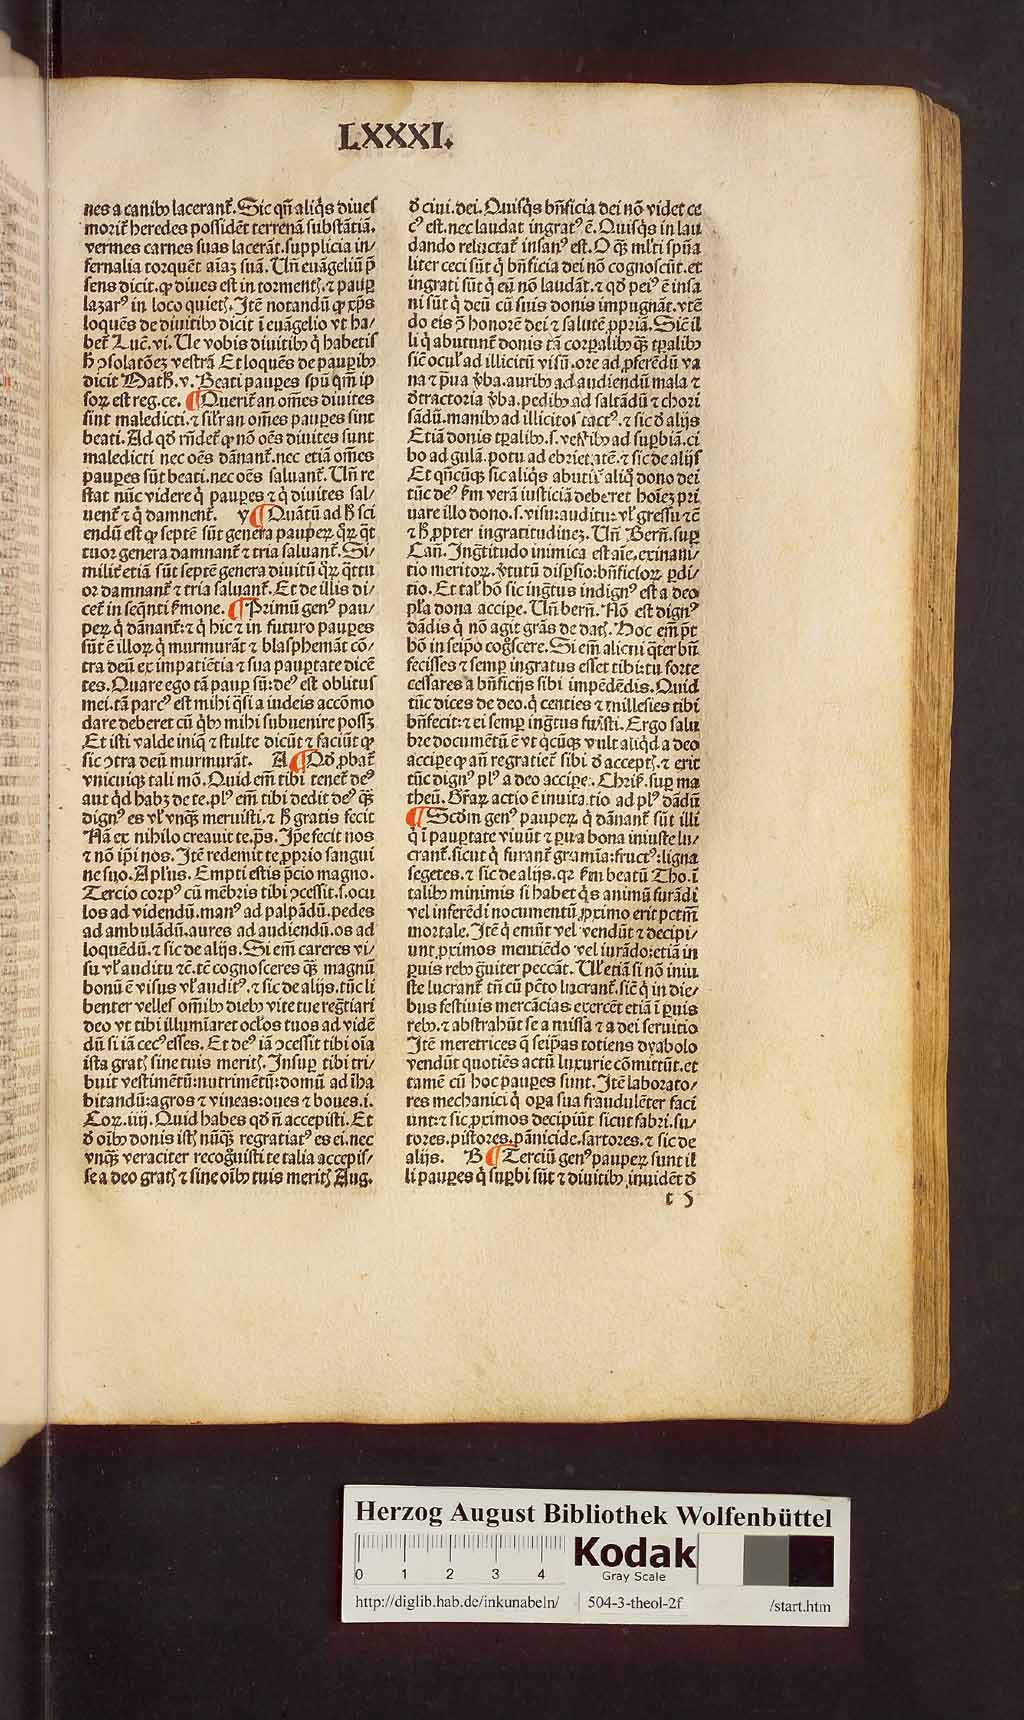 LXXXI.
nes a canibꝰ lacerant᷑. Sic qn̄ aliq̇s diues
morit᷑ heredes possidēt terrenā substātiā.
vermes carnes suas lacerāt. supplicia in/
fernalia torquēt aīaꝫ suā. Un̄ euāgeliū p̄
sens dicit. ꝙ diues est in tormentꝭ. ⁊ paup
lazarꝰ in loco quietꝭ. Itē notandū ꝙ xp̄s
loquēs de diuitibꝰ dicit ī euāgelio vt ha/
bet᷑ Luc̄. vi. Ue vobis diuitibꝰ q̇ habetis
ƕ ꝯsolatōeꝫ vestrā Et loquēs de pauꝑibꝰ
dicit Math̄. v. Beati pauꝑes spū qm̄ ip
soꝝ est reg. ce. ¶ Querit᷑ an om̄es diuites
sint maledicti. ⁊ sil̄r an om̄es pauꝑes sint
beati. Ad qd̄ rn̄det᷑ ꝙ nō oēs diuites sunt
maledicti nec oēs dānant᷑. nec etiā om̄es
pauꝑes sūt beati. nec oēs saluant᷑. Un̄ re
stat nūc videre q̇ pauꝑes ⁊ q̇ diuites sal/
uent᷑ ⁊ q̇ damnent᷑. y ¶ Quātū ad ƕ sci
endū est ꝙ septē sūt genera pauꝑeꝝ q̇ꝝ q̄t
tuor genera damnant᷑ ⁊ tria saluant᷑. Si/
milit᷑ etiā sūt septē genera diuitū q̇ꝝ q̄ttu
or damnant᷑ ⁊ tria saluant᷑. Et de illis di/
cet᷑ in seq̄nti s̄mone. ¶ Primū genꝰ pau/
peꝝ q̇ dānant᷑: ⁊ q̇ hic ⁊ in futuro pauꝑes
sūt ē illoꝝ q̇ murmurāt ⁊ blasphemāt cō/
tra deū ex impatiētia ⁊ sua pauꝑtate dicē
tes. Quare ego tā pauꝑ sū: deꝰ est oblitus
mei. tā parcꝰ est mihi q̄si a iudeis accōmo
dare deberet cū q̇bꝰ mihi subuenire possꝫ
Et isti valde iniq̄ ⁊ stulte dicūt ⁊ faciūt ꝙ
sic ꝯtra deū murmurāt. A ¶ Qd̄ ꝓbat᷑
vnicuiqꝫ tali mō. Quid em̄ tibi tenet᷑ deꝰ
aut q̇d habꝫ de te. plꝰ em̄ tibi dedit deꝰ qꝫ̄
dignꝰ es vl̄ vnqꝫ̄ meruisti. ⁊ ƕ gratis fecit
Nā ex nihilo creauit te. p̄s. Ip̄e fecit nos
⁊ nō ip̄i nos. Itē redemit te ꝓprio sangui
ne suo. Aplus. Empti estis p̄cio magno.
Tercio corpꝰ cū mēbris tibi ꝯcessit. s. ocu
los ad videndū. manꝰ ad palpādū. pedes
ad ambulādū. aures ad audiendū. os ad
loquēdū. ⁊ sic de alijs. Si em̄ careres vi/
su vl̄ auditu ⁊c̄. tē cognosceres qꝫ̄ magnū
bonū ē visus vl̄ auditꝰ. ⁊ sic de alijs. tūc li
benter velles om̄ibꝰ diebꝰ vite tue reg̃tiari
deo vt tibi illumīaret ocl̄os tuos ad vidē
dū si iā cecꝰ esses. Et deꝰ iā ꝯcessit tibi oīa
ista gratꝭ sine tuis meritꝭ. Insuꝑ tibi tri/
buit vestimētū: nutrimētū: domū ad īha
bitandū: agros ⁊ vineas: oues ⁊ boues. i.
Coꝝ. iiij. Quid habes qd̄ n̄ accepisti. Et
ð oībꝰ donis istꝭ nūqꝫ̄ regratiatꝰ es ei. nec
vnqꝫ̄ veraciter recogͦuisti te talia accepis/
se a deo gratꝭ ⁊ sine oībꝰ tuis meritꝭ Aug.
ð ciui. dei. Quisq̇s bn̄ficia dei nō videt ce
cꝰ est. nec laudat ingratꝰ ē. Quisq̇s in lau
dando reluctat᷑ insanꝰ est. O qꝫ̄ ml̄ti spūa
liter ceci sūt q̇ bn̄ficia dei nō cognoscūt. et
ingrati sūt q̇ eū nō laudāt. ⁊ qd̄ peiꝰ ē insa
ni sūt q̇ deū cū suis donis impugnāt. vtē
do eis ꝯ̄ honorē dei ⁊ salutē ꝓpriā. Sic̄ il
li q̇ abutunt᷑ donis tā corꝑalibꝰ qꝫ̄ tꝑalibꝰ
sic̄ ocul̄ ad illicitū visū. ore ad ꝓferēdū va
na ⁊ p̄ua v̄ba. auribꝰ ad audiendū mala ⁊
ðtractoria v̄ba. pedibꝰ ad saltādū ⁊ chori
sādū. manibꝰ ad illicitos tactꝰ. ⁊ sic ð alijs
Etiā donis tꝑalibꝰ. s. vestibꝰ ad suꝑbiā. ci
bo ad gulā. potu ad ebrietatē. ⁊ sic de alijs
Et qn̄cūqꝫ sic aliq̇s abutit᷑ aliq̇ dono dei
tūc deꝰ s̄m verā iusticiā deberet hoīeꝫ pri
uare illo dono. s. visu: auditu: vl̄ gressu ⁊c̄
⁊ ƕ ꝓpter ingratitudineꝫ. Un̄ Bern̄. suꝑ
Can̄. Ingͣtitudo inimica est aīe, exinani/
tio meritoꝝ. v̄tutū disꝑsio: bn̄ficioꝝ ꝑdi/
tio. Et tal̄ hō sic ingͣtus indignꝰ est a deo
pl̄a dona accipe. Un̄ bern̄. Nō est dignꝰ
dādis q̇ nō agit grās de datꝭ. Hoc em̄ p̄t
hō in seip̄o cogͦscere. Si em̄ alicui q̄ter bn̄
fecisses ⁊ semꝑ ingratus esset tibi: tu forte
cessares a bn̄ficijs sibi impēdēdis. Quid
tūc dices de deo. q̇ centies ⁊ millesies tibi
bn̄fecit: ⁊ ei semꝑ ingͣtus fuisti. Ergo salu
bre documētū ē vt q̇cūqꝫ vult aliq̇d a deo
acciꝑe ꝙ an̄ regratiet᷑ sibi ð acceptꝭ. ⁊ erit
tūc dignꝰ plꝰ a deo acciꝑe. Chris̄. suꝑ ma
theū. Gr̄aꝝ actio ē inuita.tio ad plꝰ dādū
¶ Scd̄m genꝰ pauꝑeꝝ q̇ dānant᷑ sūt illi
q̇ ī pauꝑtate viuūt ⁊ ꝑua bona iniuste lu/
crant᷑. sicut q̇ furant᷑ gramīa: fructꝰ: ligna
segetes. ⁊ sic de alijs. qꝛ s̄m beatū Tho. ī
talibꝰ minimis si habet q̇s animū furādi
vel inferēdi nocumentū ꝓximo erit pctm̄
mortale. Itē q̇ emūt vel vendūt ⁊ decipi/
unt ꝓximos mentiēdo vel iurādo: etiā in
ꝑuis rebꝰ gͣuiter peccāt. Ul̄ etiā si nō iniu
ste lucrant᷑ tn̄ cū pctō lucrant᷑. sic̄ q̇ in die/
bus festiuis mercācias exercēt etiā ī ꝑuis
rebꝰ. ⁊ abstrahūt se a missa ⁊ a dei seruitio
Itē meretrices q̄ seip̄as totiens dyabolo
vendūt quotiēs actū luxurie cōmittūt. et
tamē cū hoc pauꝑes sunt. Itē laborato/
res mechanici q̇ oꝑa sua fraudulēter faci
unt: ⁊ sic ꝓximos decipiūt sicut fabri. su/
tores. pistores. pānicide. sartores. ⁊ sic de
alijs. B ¶ Terciū genꝰ pauꝑeꝝ sunt il
li pauꝑes q̇ suꝑbi sūt ⁊ diuitibꝰ inuidēt ð
t 5
Herzog August Bibliothek Wolfenbüttel
0 1 2 3 4
Kodak
Gray Scale
http://diglib.hab.de/inkunabeln/ 504-3-theol-2f /start.htm